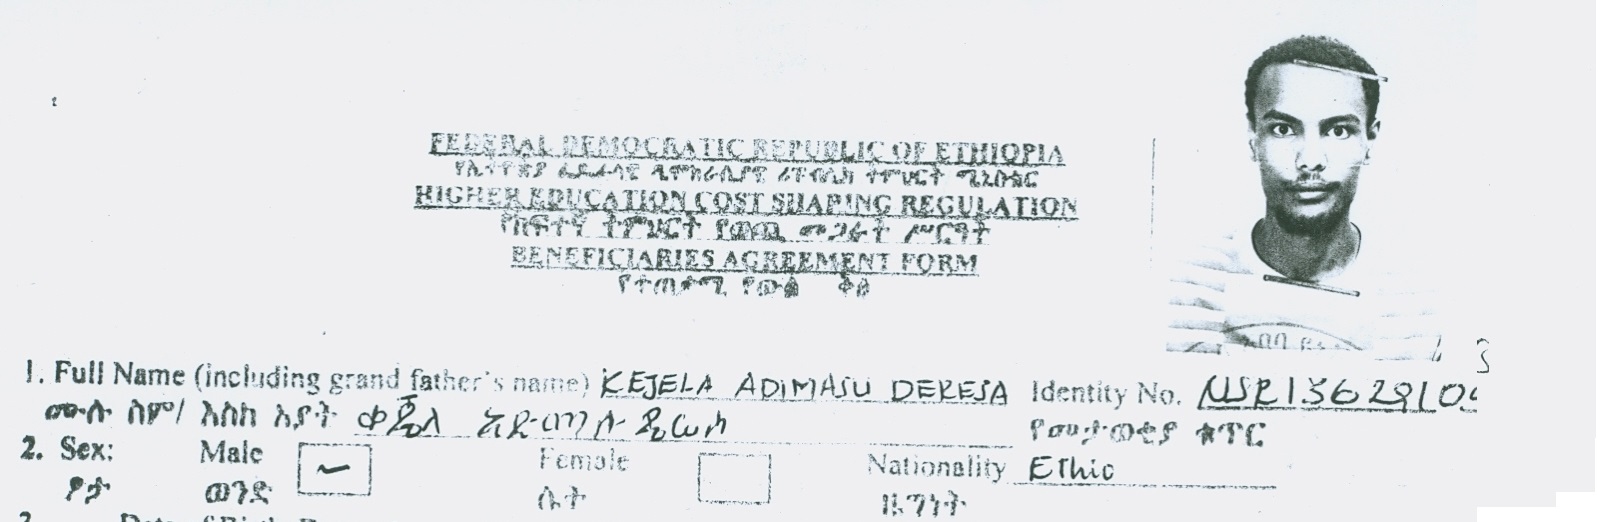 FEDERAL DEMOCRATIC REPUBLIC OF ETHIOPIA
የኢትዮጵያ ፌዴራላዊ ዲሞክራሲያዊ ሪፐብሊክ ትምህርት ሚኒስቴር
HIGHER EDUCATION COST SHARING REGULATION
የከፍተኛ ትምህርት የወጪ መጋራት ሥርዓት
BENEFICIARIES AGREEMENT FORM
የተጠቃሚ የውል ቅፅ
1. Full Name (including grand father's name) KEJELA ADIMASU DERESA Identity No.
ሙሉ ስም/ እስከ አያት ቀጄላ አድማሱ ዴሬሳ የመታወቂያ ቁጥር
2. Sex: Male Female Nationality Ethio
ፆታ ወንድ ሴት ዜግነት